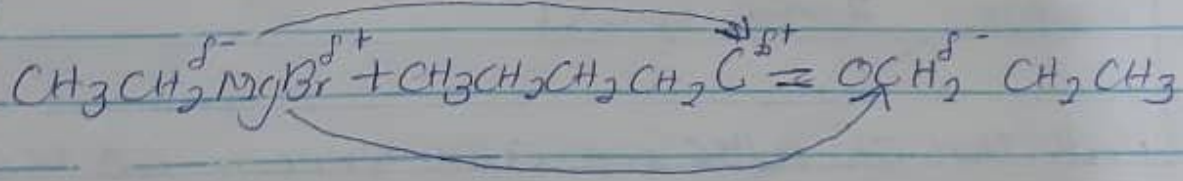 CH₃CH₂^δ⁻MgBr^δ⁺ + CH₃CH₂CH₂CH₂C^δ⁺ = OCH₂^δ⁻ CH₂CH₃